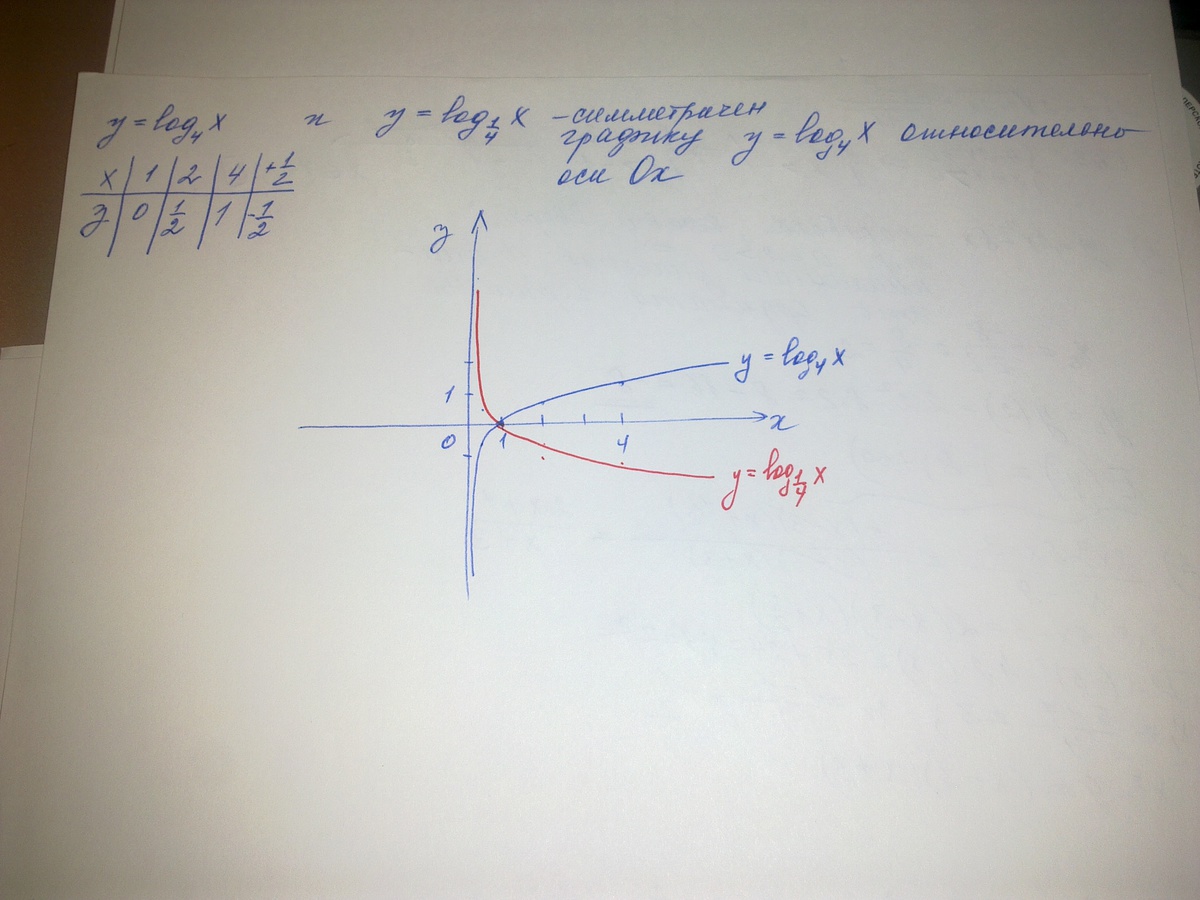 y = log₄ x и y = log_{1/4} x – симметричен
графику y = log₄ x относительно
оси Ox
x | 1 | 2 | 4 | +1/2
y | 0 | 1/2 | 1 | -1/2
y
1
y = log₄ x
0 1 4 x
y = log_{1/4} x